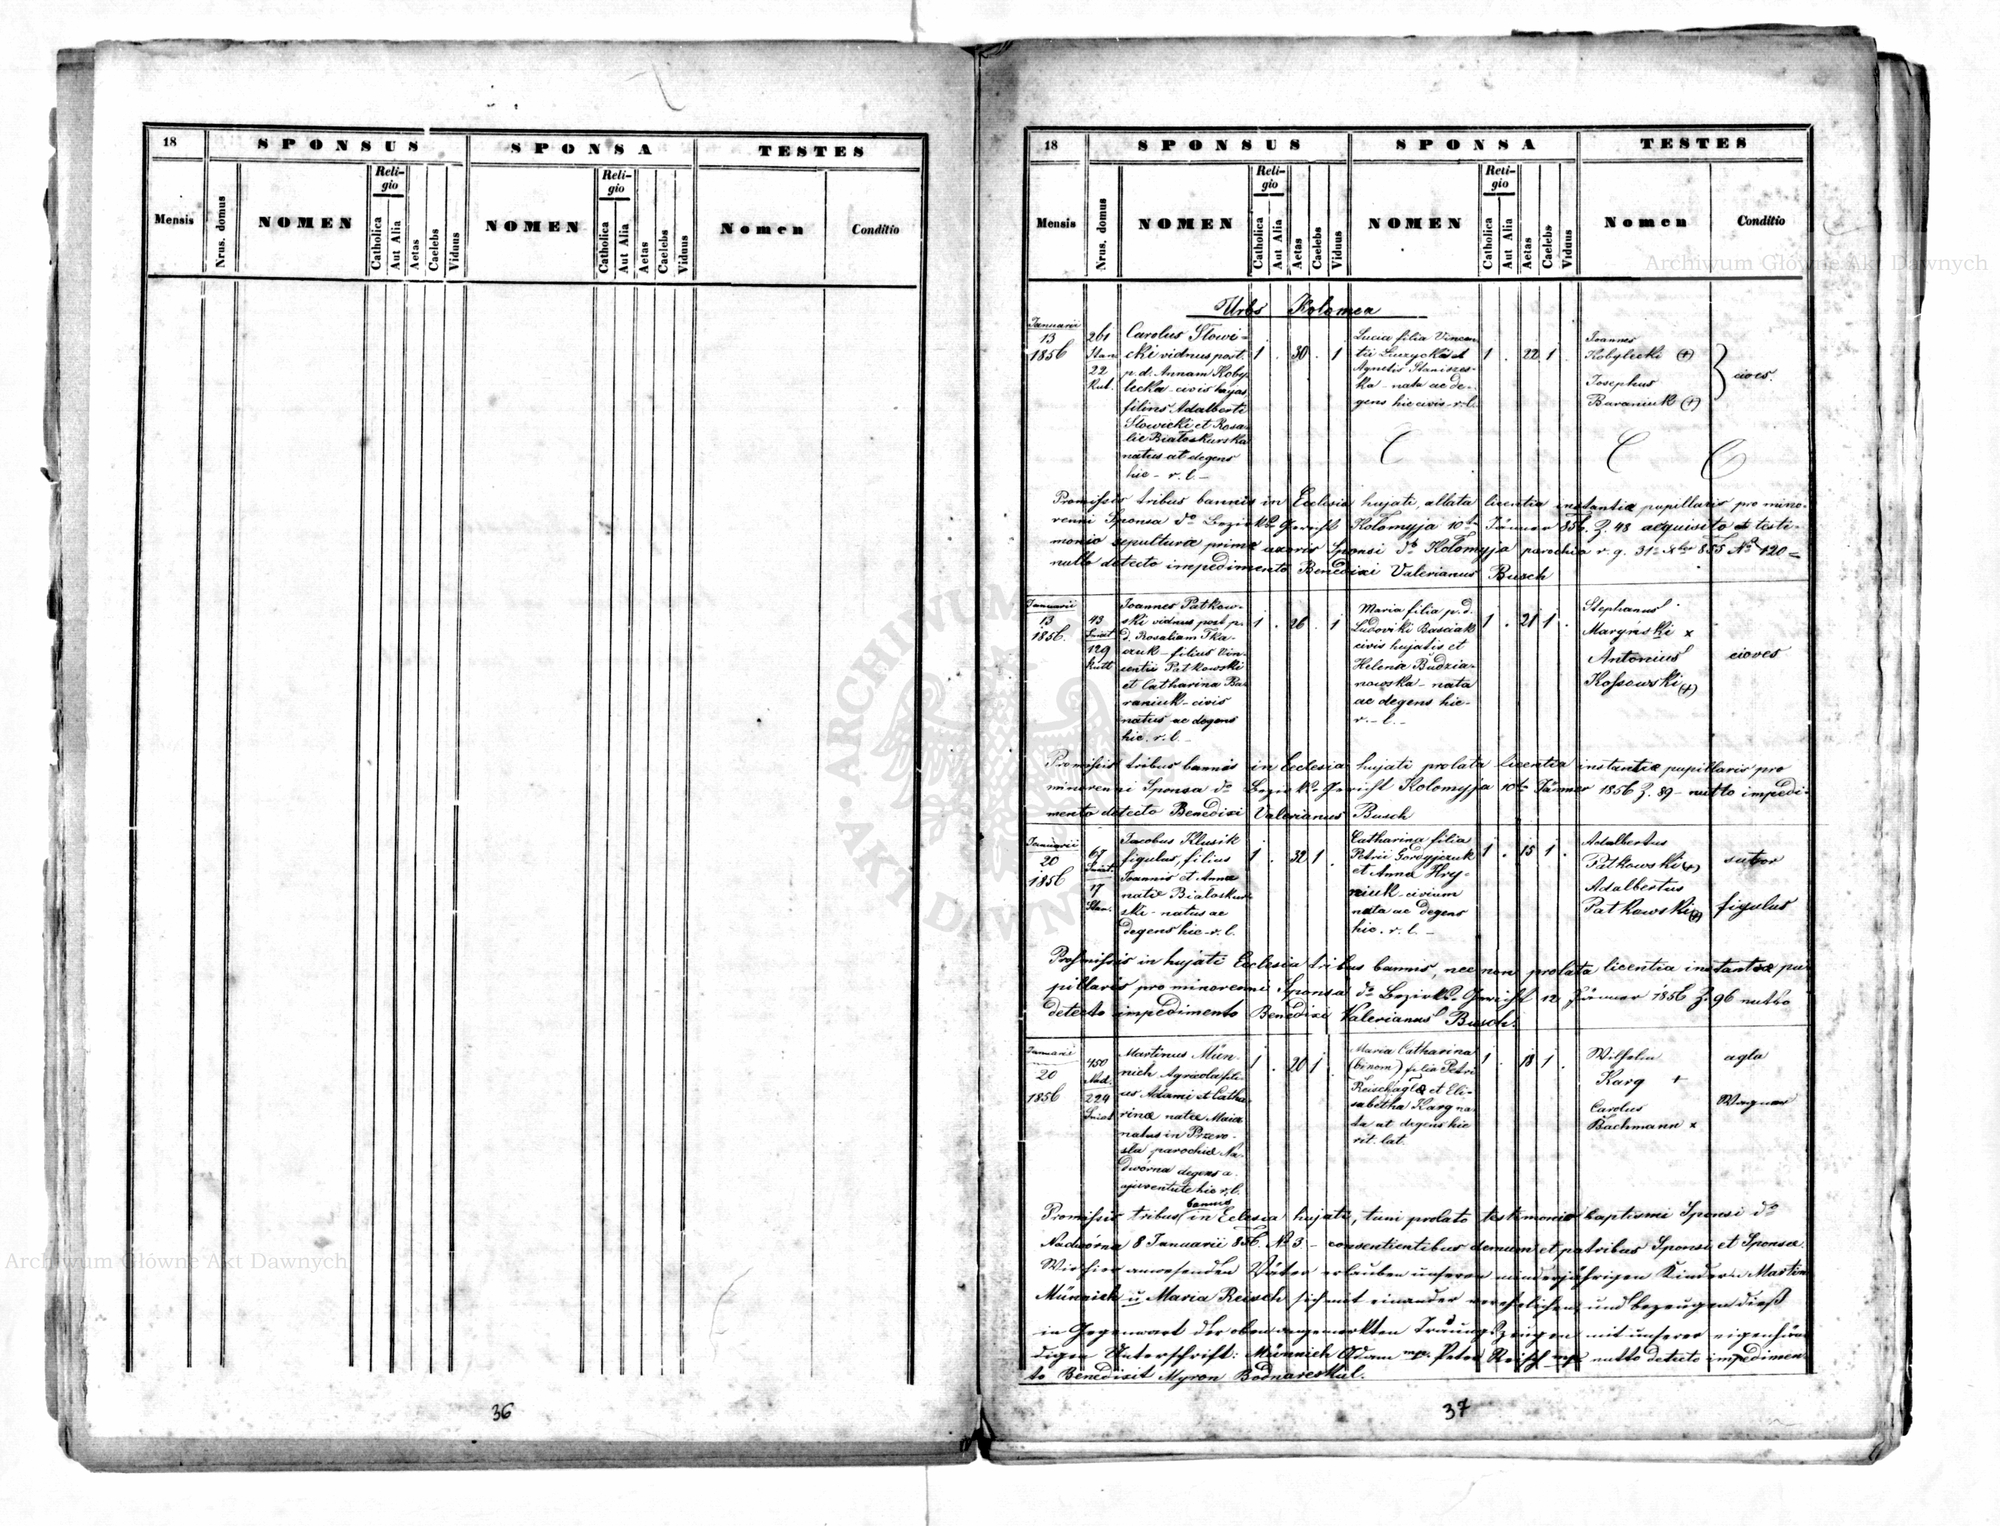 18
SPONSUS
SPONSA
TESTES
Mensis
Nrus. domus
NOMEN
Religio
Catholica
Aut Alia
Aetas
Caelebs
Viduus
NOMEN
Religio
Catholica
Aut Alia
Aetas
Caelebs
Viduus
Nomen
Conditio
36
18
SPONSUS
SPONSA
TESTES
Mensis
Nrus. domus
NOMEN
Religio
Catholica
Aut Alia
Aetas
Caelebs
Viduus
NOMEN
Religio
Catholica
Aut Alia
Aetas
Caelebs
Viduus
Nomen
Conditio
Urbs Kolomea
Januarii
13
1856
261
Stan.
22
Kut.
Carolus Słowi-
cki viduus post.
p. d. Annam Koby
lecka civis hujas
filius Adalberti
Słowicki et Rosa-
lie Białoskurska
natus at degens
hic - r. l. -
1 . 30 . 1
Lucia filia Vincen
tii Luzycki et
Agnetis Staniszes-
ka - nata ac de-
gens hic civis - r. l.
1 . 22 1 .
Joannes
Kobylecki (+)
Josephus
Baraniuk (+)
cives.
Promissis tribus bannis in Ecclesia hujati, allata licentia instantiæ pupillaris pro mino-
renni Sponsa do Bezirks Gericht Kołomyja 10t Jänner 856. Z. 48 acquisito et testi-
monio sepulturæ primæ uxoris Sponsi do Kołomyja parochia r. g. 31 Xber 855 No 120 =
nullo detecto impedimento Benedixi Valerianus Busch
Januarii
13
1856.
43
Sniat
129
Kutt
Joannes Patkow-
ski viduus post p.
d. Rosaliam Tka-
czuk - filius Vin-
centii Patkowski
et Catharina Ba-
raniuk - civis
natus ac degens
hic. r. l. -
1 . 26 . 1
Maria filia p. d.
Ludoviki Basciak
civis hujatis et
Helena Budzia-
nowska - nata
ac degens hic -
r. - l. -
1 . 21 1 .
Stephanus
Maryński x
Antonius
Kossowski (+)
cives
Promissis tribus bannis in Ecclesia hujati prolata licentia instantiæ pupillaris pro
minorenni Sponsa do Bezirks Gericht Kolomyja 10t Jänner 1856 Z. 89 - nullo impedi-
mento detecto Benedixi Valerianus Busch
Januarii
20
1856
67
Sniat.
17
Stan.
Jacobus Klusik
figulus, filius
Joannis et Anna
natæ Bialoskur-
ski - natus ac
degens hic - r. l.
1 . 32 1 .
Catharina filia
Petrii Gordyjczuk
et Anna Hry-
niuk - civium
nata ac degens
hic. r. l. -
1 . 15 1 .
Adalbertus
Patkowski (+)
Adalbertus
Patkowski (+)
sutor
figulus
Promissis in hujati Ecclesia tribus bannis, nec non prolata licentia instantiæ pu-
pillaris pro minorenni Sponsa do Bezirks Gericht 12 Jänner 1856 Z. 96 nullo
detecto impedimento Benedixi Valerianus Busch.
Januarii
20
1856
450
Nad.
224
Sniat
Martinus Mün-
nich Agricola fili-
us Adami et Catha-
rina natæ Maia
natus in Przero-
sla parochiæ Na-
dwórna degens a
ajuventute hic r. l.
1 . 20 1 .
Maria Catharina
(binom.) filia Petri
Reisch aglæ et Eli-
sabetha Karg na
ta at degens hic
rit. lat.
1 . 18 1 .
Wilhelm
Karg +
Carolus
Bachmann x
agla
Wagner
Promissis tribus bannis in Eclesia hujati, tum prolato testimonio baptismi Sponsi do
Nadwórna 8 Januarii 856. No 3 - consentientibus demum et patribus Sponsi et Sponsæ.
Wir hier anwesenden Väter erlauben unseren minderjährigen Kindern Martin
Münnich u Maria Reisch sich mit einander verehelichen und bezeugen dieß
in Gegenwart der oben angemerkten Trauungszeugen mit unserer eigenhän
digen Unterschrift: Münnich Adam mp. Peter Reisch mp nullo detecto impedimen
to Benedixit Myron Bodnareskul.
37
Archiwum Główne Akt Dawnych
Archiwum Główne Akt Dawnych
ARCHIWUM
AKT DAWNYCH